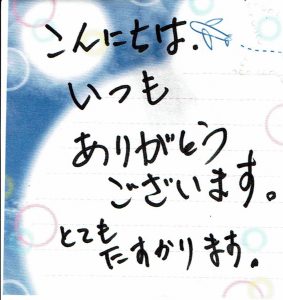 こんにちは.
いつも
ありがとう
ございます。
とても
たすかります。